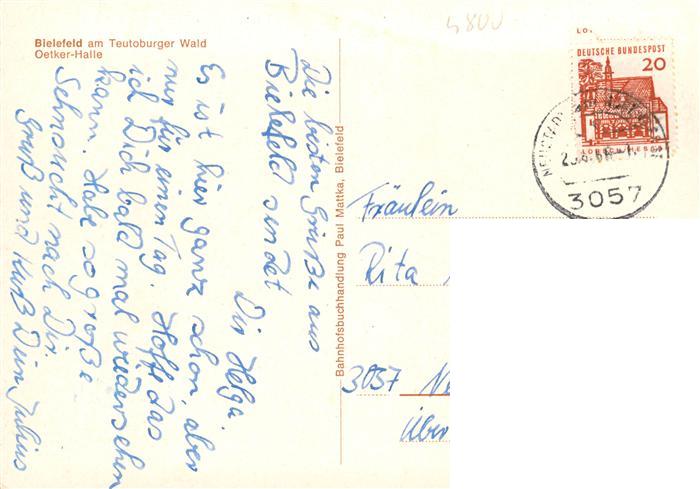 Bielefeld am Teutoburger Wald
Oetker-Halle
4800
Die besten Grüße aus
Bielefeld sendet
Dir Helga.
Es ist hier ganz schön, aber
nur für einen Tag. Hoffe das
ich Dich bald mal wiedersehen
kann. Habe so große
Sehnsucht nach Dir.
Gruß und Kuß Dein Julius
Bahnhofsbuchhandlung Paul Mattka, Bielefeld
DEUTSCHE BUNDESPOST
20
3057
Fräulein
Rita
3057